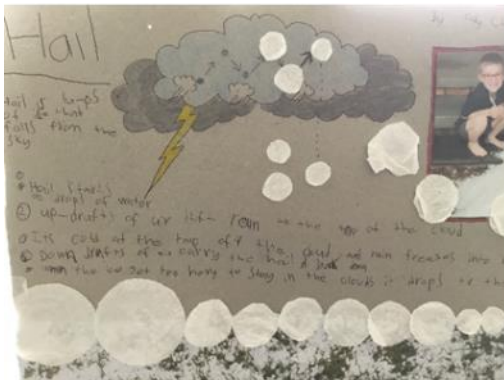 Hail
by
Hail is lumps
of ice that
falls from the
sky
Hail starts
drops of water
② up-drafts of air lift rain to the top of the cloud
Its cold at the top off the cloud and rain freezes into
Down drafts of air carry the hail
the ice get too heavy to stay in the clouds it drops to the